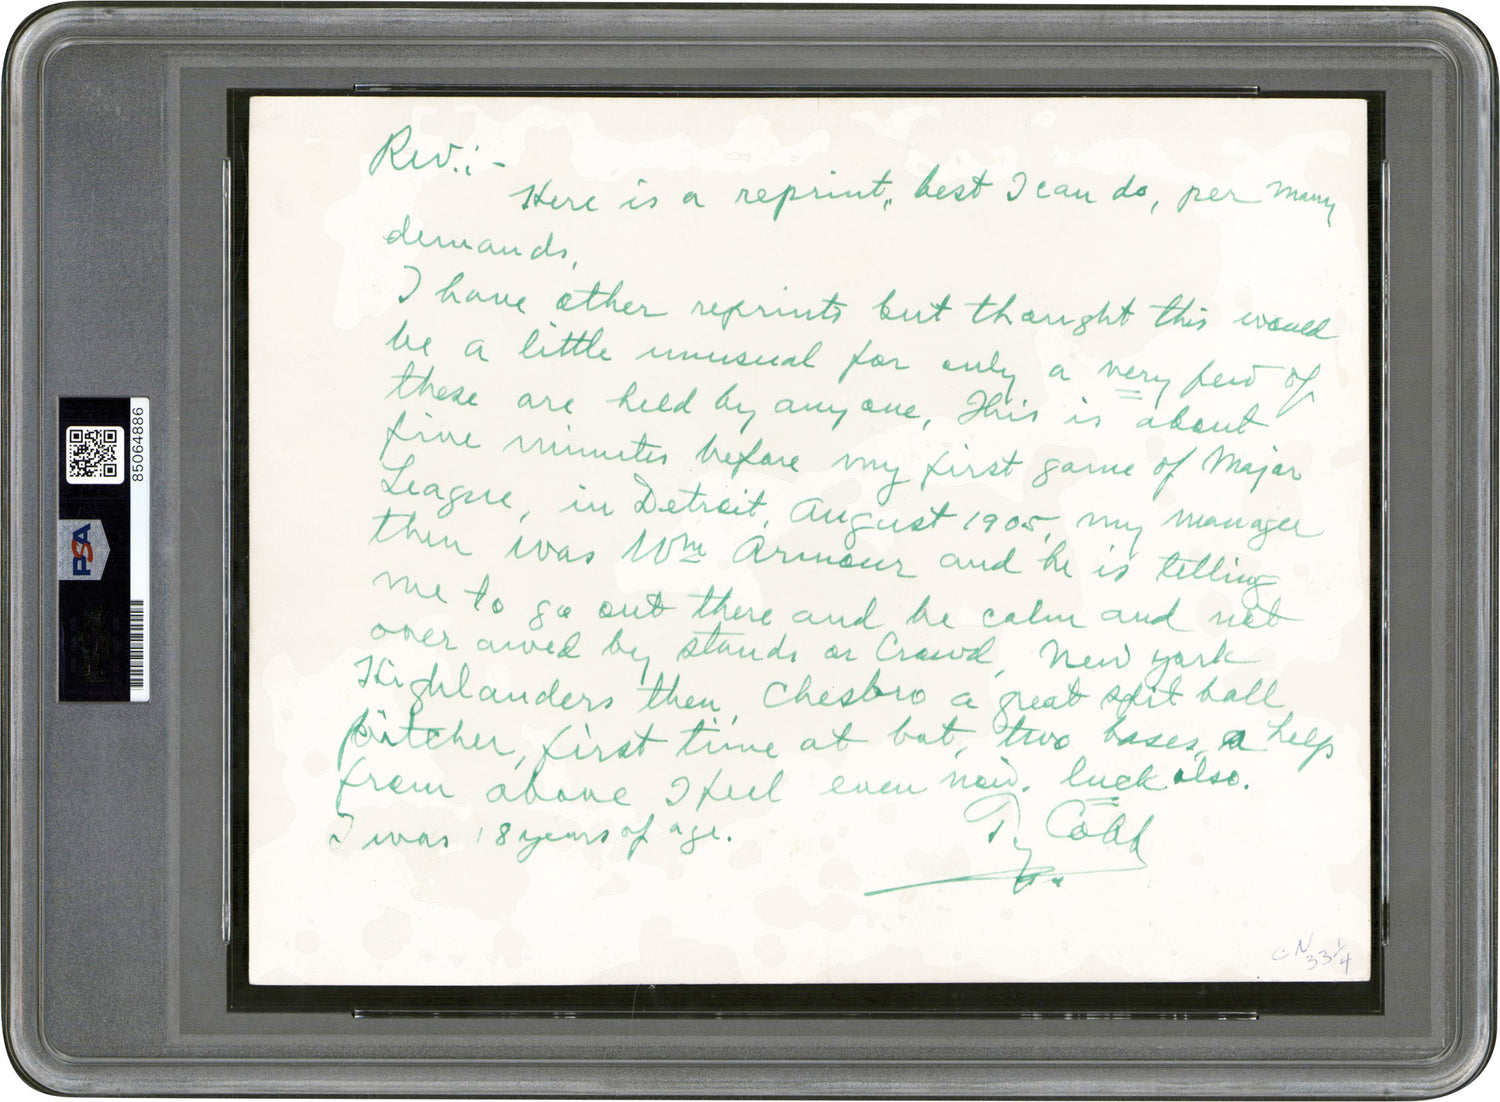 Rev.:-
Here is a reprint, best I can do, per many
demands,
I have other reprints but thought this would
be a little unusual for only a very few of
these are held by any one, This is about
five minutes before my first game of Major
League, in Detroit, August 1905, my manager
then was Wm Armour and he is telling
me to go out there and be calm and not
over awed by stands or Crowd, New York
Highlanders then, Chesbro a great spit ball
pitcher, first time at bat, two bases, a help
from above, I feel even now. luck also.
I was 18 years of age.
Ty Cobb
33 1/4
85064886
PSA